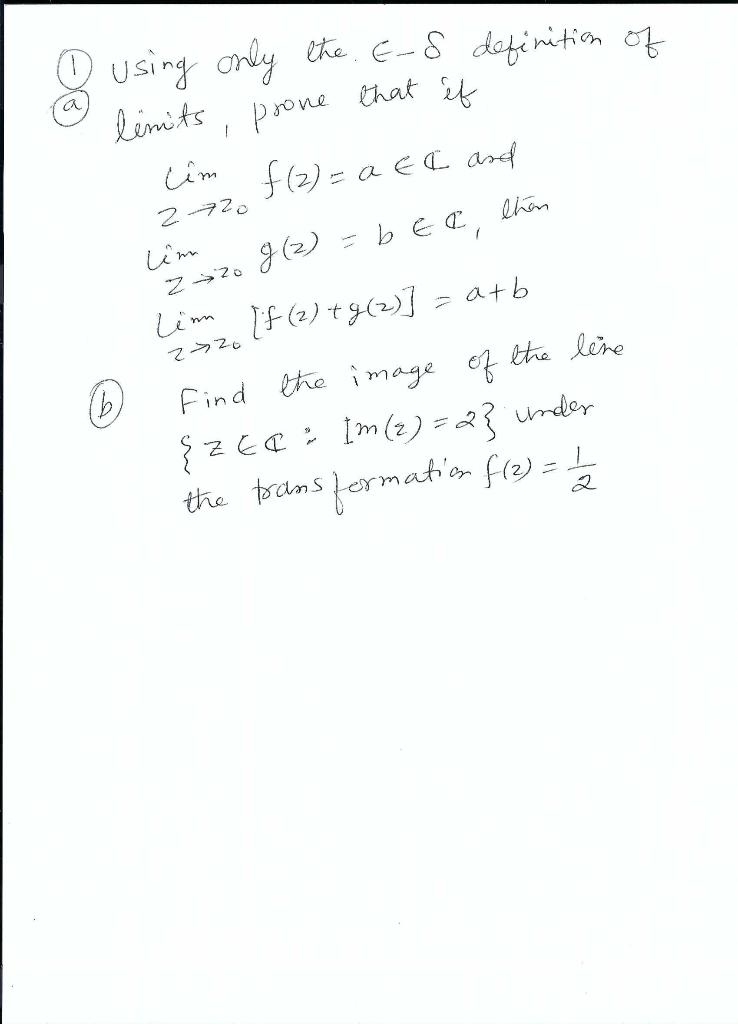 ① using only the ϵ-δ definition of
ⓐ limits, prove that if
lim f(z) = a ∈ ℂ and
z→z₀
lim g(z) = b ∈ ℂ, then
z→z₀
lim [f(z)+g(z)] = a+b
z→z₀
ⓑ Find the image of the line
{z ∈ ℂ : Im(z) = 2} under
the transformation f(z) = 1/z